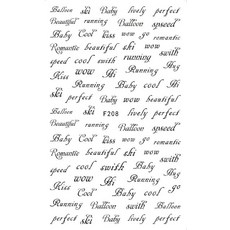 Balloon ski Baby lively perfect
Beautiful running Balloon spseed
Baby Cool kiss wow go
Romantic beautiful ski swith
speed cool swith running
Kiss wow Hi Running Hey
ski Baby Cool perfect
Balloon ski F208 lively perfect
Beautiful running Balloon spseed
Baby Cool kiss wow go
Romantic beautiful ski swith
speed cool swith running
Kiss wow Hi Running Hey
Baby Cool wow go
Running Balloon swith Balloon
perfect ski Baby lively perfect